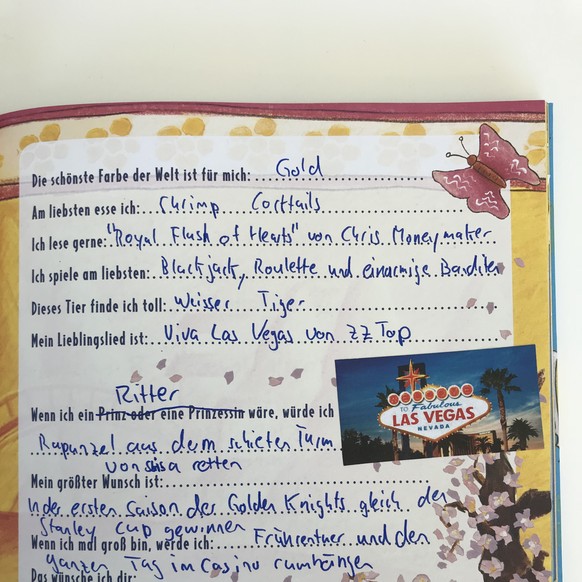 Die schönste Farbe der Welt ist für mich: Gold
Am liebsten esse ich: Shrimp Cocktails
Ich lese gerne: "Royal Flush of Hearts" von Chris Moneymaker
Ich spiele am liebsten: Blackjack, Roulette und einarmige Banditen
Dieses Tier finde ich toll: Weisser Tiger
Mein Lieblingslied ist: Viva Las Vegas von ZZ Top
WELCOME
TO Fabulous
LAS VEGAS
NEVADA
Ritter
Wenn ich ein Prinz oder eine Prinzessin wäre, würde ich
Rapunzel aus dem schiefen Turm
von Pisa retten
Mein größter Wunsch ist:
In der ersten Saison der Golden Knights gleich den
Stanley Cup gewinnen
Wenn ich mal groß bin, werde ich: Frührentner und den
ganzen Tag im Casino rumhängen
Das wünsche ich dir: